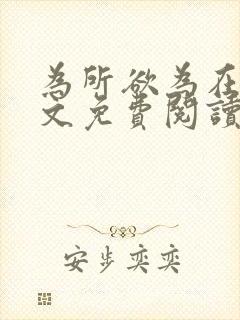 為所欲為在
文免費閱讀
安步奕奕